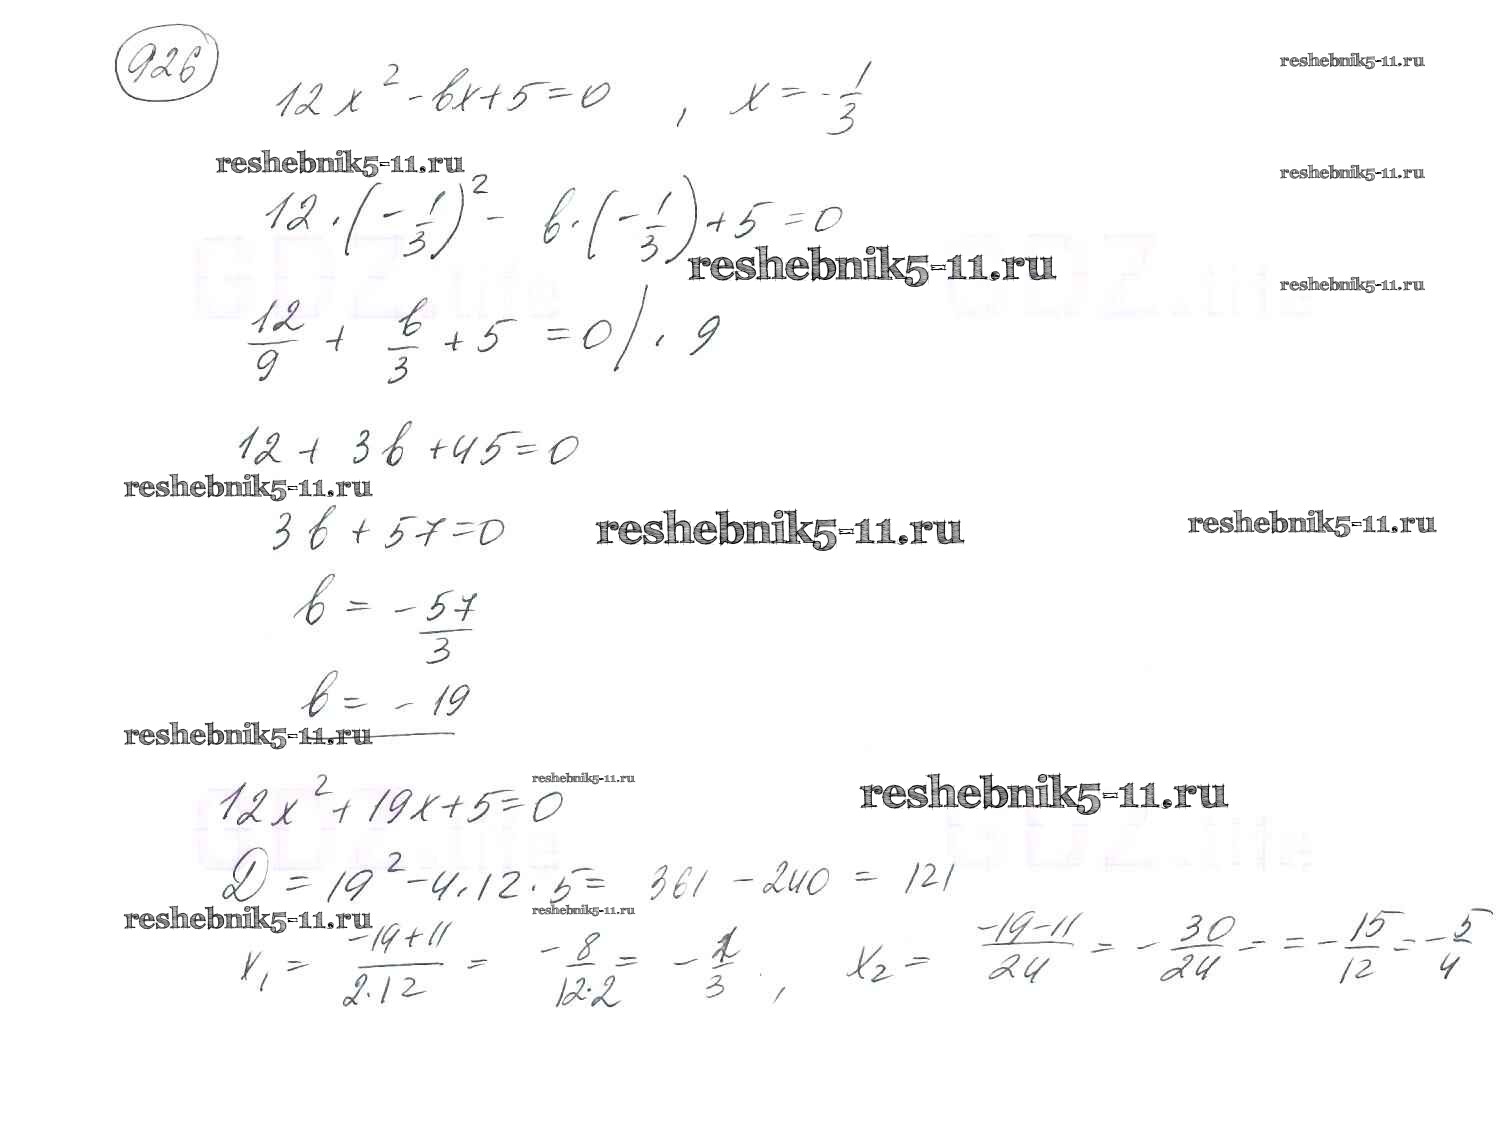 926
12x² - bx + 5 = 0 , x = -1/3
reshebnik5-11.ru
reshebnik5-11.ru
reshebnik5-11.ru
12 · (-1/3)² - b · (-1/3) + 5 = 0
reshebnik5-11.ru
GDZ.life
GDZ.life
reshebnik5-11.ru
12/9 + b/3 + 5 = 0 | · 9
12 + 3b + 45 = 0
reshebnik5-11.ru
3b + 57 = 0
reshebnik5-11.ru
reshebnik5-11.ru
b = -57/3
b = - 19
reshebnik5-11.ru
reshebnik5-11.ru
12x² + 19x + 5 = 0
reshebnik5-11.ru
GDZ.life
GDZ.life
D = 19² - 4 · 12 · 5 = 361 - 240 = 121
reshebnik5-11.ru
reshebnik5-11.ru
x₁ = (-19+11)/(2·12) = -8/(12·2) = -1/3 , x₂ = (-19-11)/24 = -30/24 = = -15/12 = -5/4